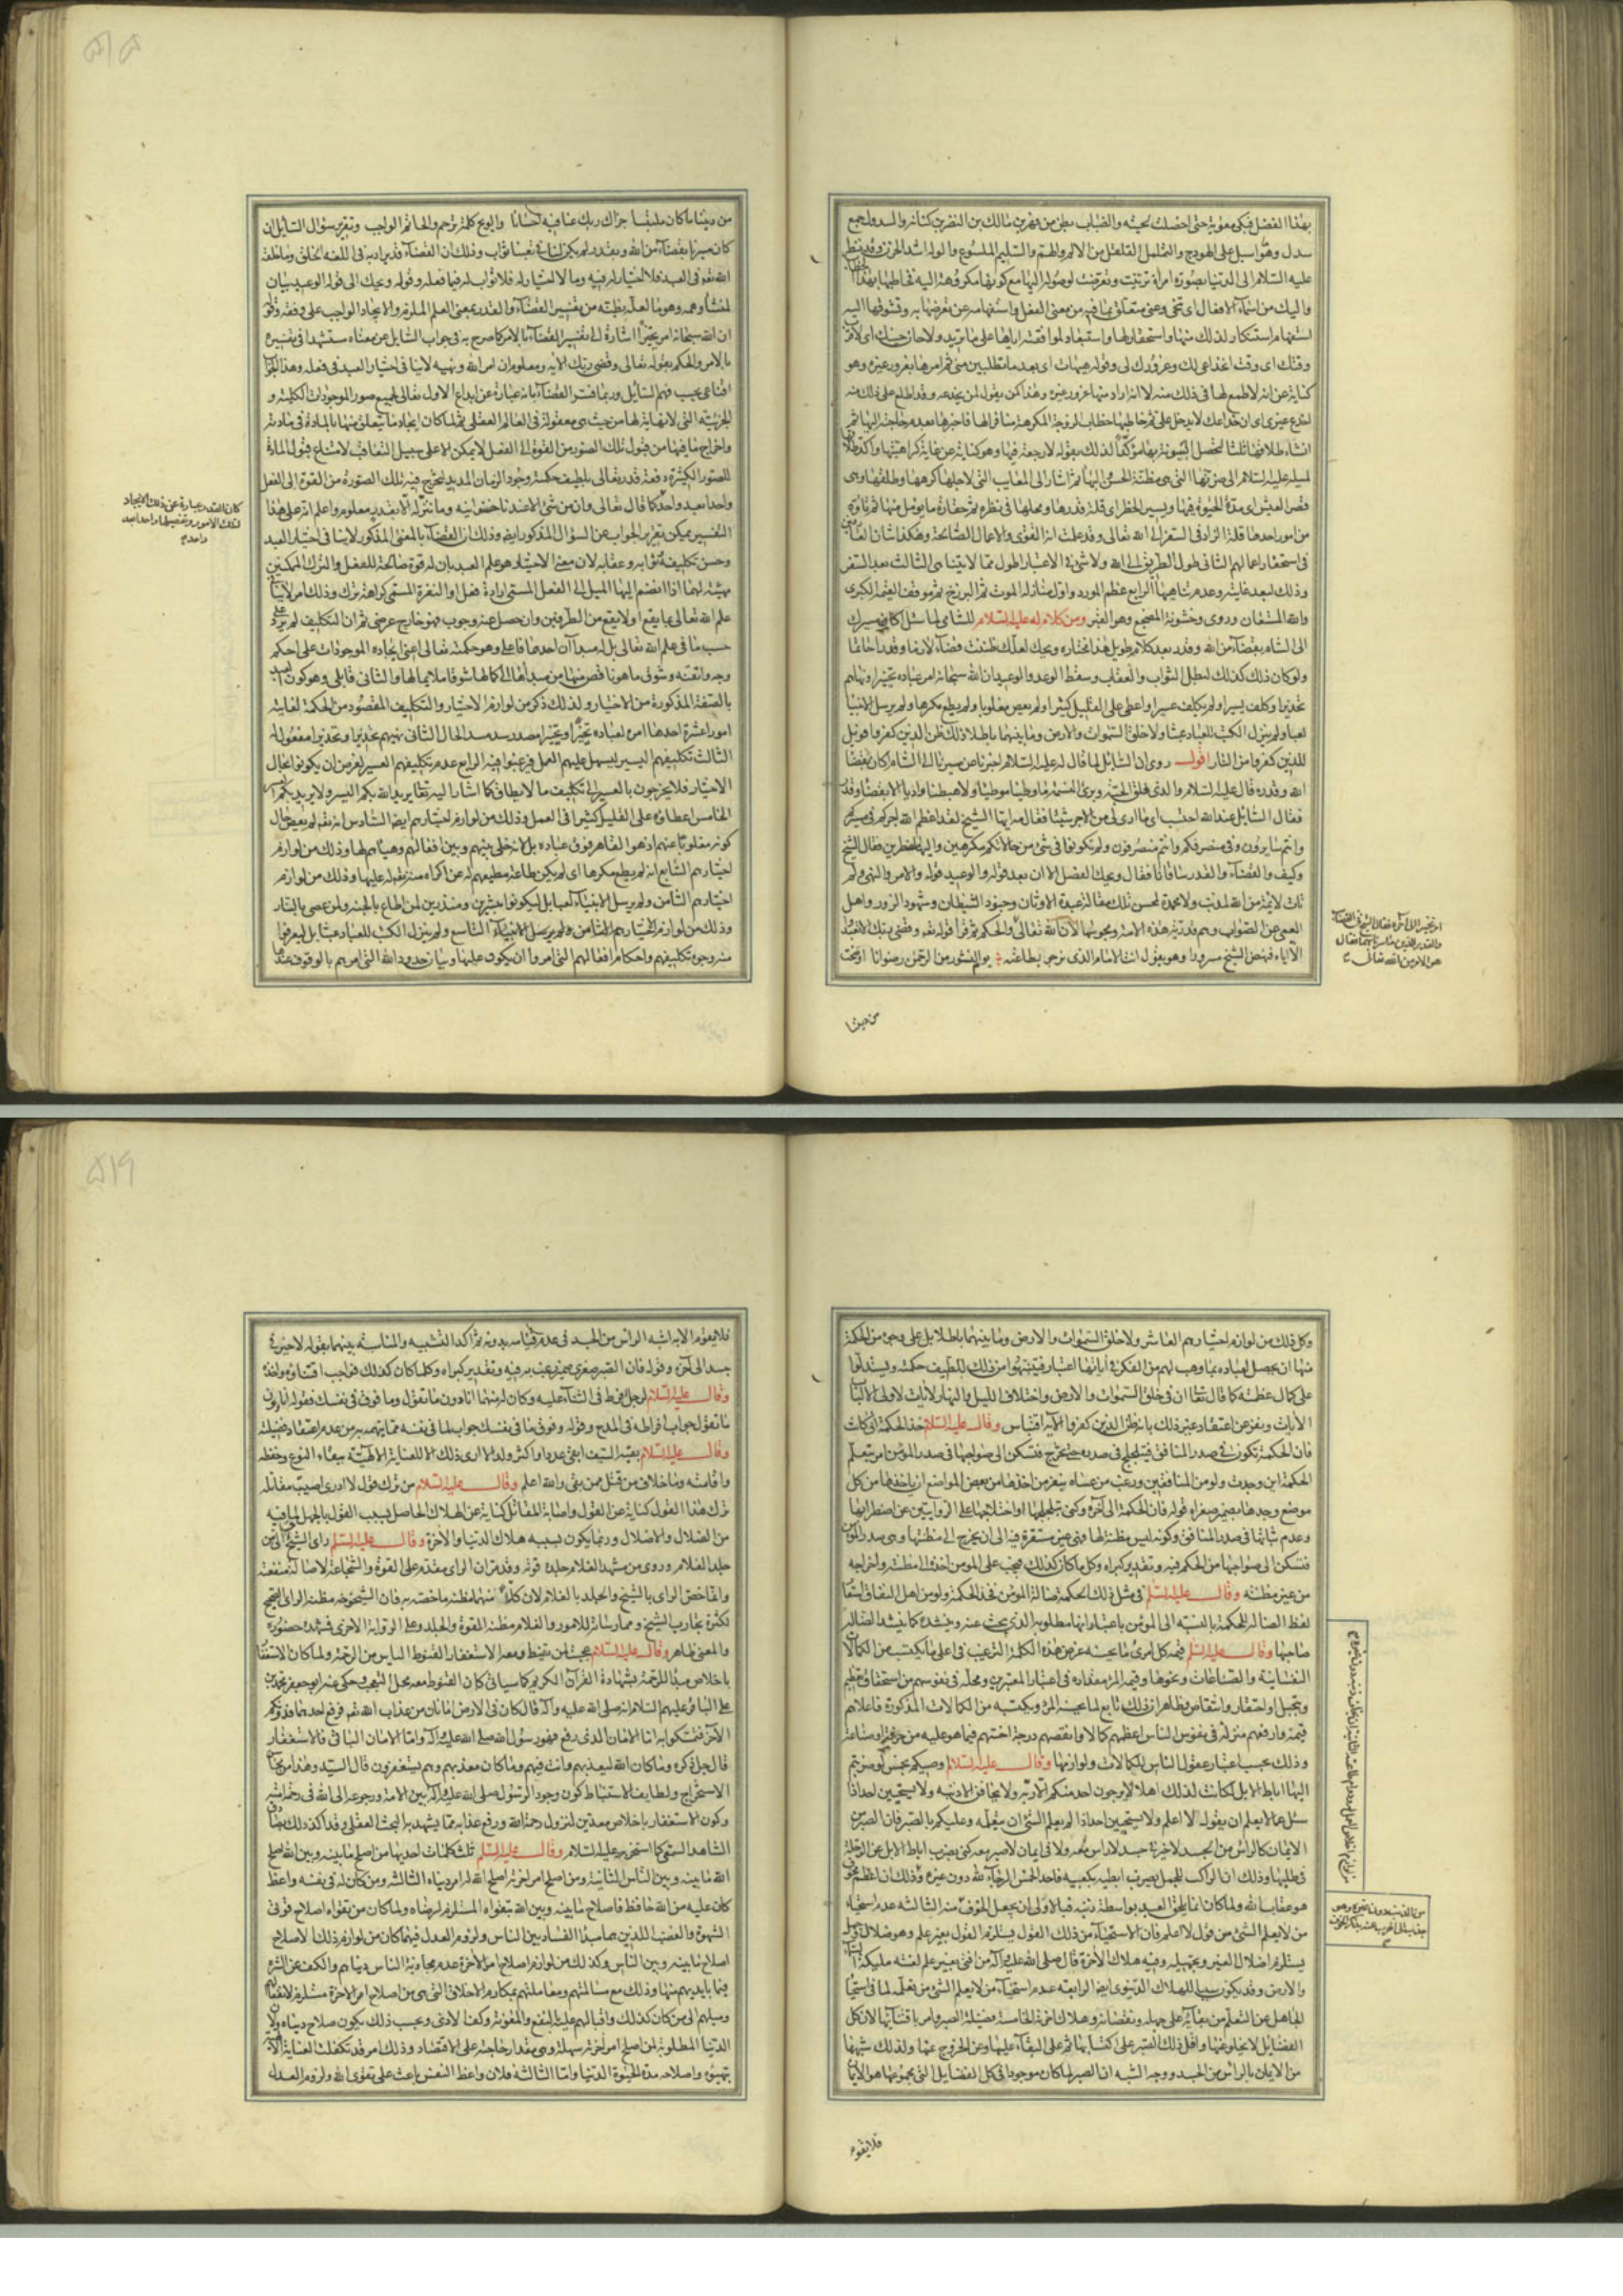 بهذا الفضل فبكى معوية حتى اخضلت لحيته والضباب بطن من فهر بن مالك بن النضر بن كنانة والسدول جمع
سدل وهو ما اسبل على الهودج والتململ التقلقل من الالم والهم والسليم الملسوع والوله اشد الحزن وقد نظر
عليه السلام الى الدنيا بصورة امراة تزينت وتعرضت لوصوله اليها مع كونها مكروهة اليه فخاطبها بهذا
واليك من اسماء الافعال اى تنحى وعنى متعلق بما فيه من معنى الفعل واستفهامه عن تعرضها به وتشوقها اليه
استفهام استنكار لذلك منها واستحقار لها واستبعاد لموافقته اياها على ما تريد ولا حان حينك اى لا قرب
وقتك اى وقت انخداعى لك وغرورك لى وقوله هيهات اى بعد ما تطلبين منى ثم امرها بغرور غيره وهو
كناية عن انه لا طمع لها فى ذلك منه لا انه اراد منها غرور غيره وهذا كمن يقول لمن يخدعه وقد اطلع على ذلك منه
اخدع غيرى اى ان خداعك لا يدخل على ثم خاطبها خطاب الزوجة المكرهة منافرا لها فاخبرها بعدم حاجته اليها ثم
انشاء طلاقها ثلثا لتحصل البينونة بها مؤكدا لذلك بقوله لا رجعة فيها وهو كناية عن غاية كراهيتها
المعايب التى لاجلها كرهها وطلقها وهى
قصر العيش اى مدة الحيوة فيها ويسير الخطر اى قلة قدرها ومحلها فى نظره ثم حقارة ما يؤمل منها ثم تاوه
من امور احدها قلة الزاد فى السفر الى الله تعالى وقد علمت انه التقوى والاعمال الصالحة وهكذا شان العارفين
فى استحقار اعمالهم الثانى طول الطريق الى الله ولا شىء فى الاعتبار اطول مما لا يتناهى الثالث بعد السفر
وذلك لبعد غايته وعدم تناهيها الرابع عظم المورد واول منازله الموت ثم البرزخ ثم موقف القيمة الكبرى
والله المستعان وروى وخشونة المضجع وهو القبر ومن كلام له عليه السلام للشامى لما سئل اكان مسيرك
الى الشام بقضاء من الله وقدر بعد كلام طويل هذا مختاره ويحك لعلك ظننت قضاء لازما وقدرا حاتما
ولو كان ذلك كذلك لبطل الثواب والعقاب وسقط الوعد والوعيد ان الله سبحانه امر عباده تخييرا ونهاهم
تحذيرا وكلف يسيرا ولم يكلف عسيرا واعطى على القليل كثيرا ولم يعص مغلوبا ولم يطع مكرها ولم يرسل الانبياء
لعبا ولم ينزل الكتب للعباد عبثا ولا خلق السموات والارض وما بينهما باطلا ذلك ظن الذين كفروا فويل
للذين كفروا من النار اقول روى ان السائل لما قال له عليه السلام اخبرنا عن مسيرنا الى الشام اكان بقضاء
الله وقدره قال عليه السلام والذى فلق الحبة وبرئ النسمة ما وطئنا موطئا ولا هبطنا واديا الا بقضاء وقدر
فقال السائل عند الله احتسب عناى ما ارى لى من الاجر شيئا فقال مه ايها الشيخ لقد عظم الله اجركم فى مسيركم
وانتم سايرون وفى منصرفكم وانتم منصرفون ولم تكونوا فى شىء من حالاتكم مكرهين ولا اليها مضطرين فقال الشيخ
وكيف والقضاء والقدر ساقانا فقال ويحك الفصل الا ان بعد قوله والوعيد قوله والامر والنهى ولم
تات لائمة من الله لمذنب ولا محمدة لمحسن تلك مقالة عبدة الاوثان وجنود الشيطان وشهود الزور واهل
العمى عن الصواب وهم قدرية هذه الامة ومجوسها
الا اياه فنهض الشيخ مسرورا وهو يقول انت الامام الذى نرجو بطاعته يوم النشور من الرحمن رضوانا اوضحت
من ديننا
من ديننا ما كان ملتبسا جزاك ربك عنا فيه احسانا والويح كلمة ترحم والحاتم الواجب وتقرير سؤال السائل ان
كان مسيرنا بقضاء من الله وبقدره لم يكن لنا فى تعبنا ثواب وذلك ان القضاء قد يراد به فى اللغة الخلق وما خلقه
الله تعم فى العبد فلا اختيار له فيه وما لا اختيار له فلا ثواب له فيما فعله وقوله ويحك الى قوله الوعيد بيان
لمنشأ وهمه وهو ما لعله يظنه من تفسير القضاء والقدر بمعنى العلم الملزم والايجاد الواجب على وفقه وقوله
ان الله سبحانه امر تخييرا اشارة الى تفسير القضاء بالامر كما صرح به فى جواب السائل عن معناه مستشهدا فى تفسيره
بالامر والحكم بقوله تعالى وقضى ربك الاية ومعلوم ان امر الله ونهيه لا ينافى اختيار العبد فى فعله وهذا الجواب
اقناعى بحسب فهم السايل وربما فسر القضاء بانه عبارة عن ابداع الاول تعالى لجميع صور الموجودات الكلية و
الجزئية التى لا نهاية لها من حيث هى معقولة فى العالم العقلى ثم لما كان ايجاد ما يتعلق منها بالمادة فى مادته
واخراج ما فيها من قبول تلك الصور من القوة الى الفعل لا يمكن الا على سبيل التعاقب لامتناع قبول المادة
للصور الكثيرة دفعة قدر تعالى بلطيف حكمته وجود الزمان المديد لتخرج فيه تلك الصورة من القوة الى الفعل
واحدا بعد واحد كما قال تعالى وان من شىء الا عندنا خزائنه وما ننزله الا بقدر معلوم واعلم انه على هذا
التفسير يمكن تقرير الجواب عن السؤال المذكور ايضا وذلك ان القضاء بالمعنى المذكور لا ينافى اختيار العبد
وحسن تكليفه وثوابه وعقابه لان معنى الاختيار هو علم العبد بان له قوة صالحة للفعل والترك الممكنين
مهيئة لهما اذا انضم اليها الميل الى الفعل المسمى ارادة فعل او النفرة المسمى كراهة ترك وذلك امر لا ينافى
علم الله تعالى بما يقع او لا يقع من الطرفين وان حصل عنه وجوب فهو خارج عرضى ثم ان التكليف لم يرد على
حسب ما فى علم الله تعالى بل له مبدآن احدهما فاعلى وهو حكمته تعالى اعنى ايجاده الموجودات على احكم
وجه واتقنه وسوق ما هو ناقص منها من مبدأها الى كمالها شوقا ملايما لها والثانى قابلى وهو كون العبد
بالصفة المذكورة من الاختيار ولذلك ذكر من لوازم الاختيار والتكليف المقصود من الحكمة لغايته
امورا عشرة احدها امره لعباده تخييرا وتخييرا مصدر سد مسد الحال الثانى نهيهم تحذيرا وتحذيرا مفعول له
الثالث تكليفهم اليسير ليسهل عليهم العمل فيرغبوا فيه الرابع عدم تكليفهم العسير لغرض ان يكونوا بحال
الاختيار فلا يخرجون بالعسير الى تكليف ما لا يطاق كما اشار اليه تعالى يريد الله بكم اليسر ولا يريد بكم العسر
الخامس اعطاؤه على القليل كثيرا فى العمل وذلك من لوازم اختيارهم ايضا السادس انه تعم لم يعص حال
كونه مغلوبا عنهم اذ هو القاهر فوق عباده بل لانه خلى بينهم وبين افعالهم وهيأهم لها وذلك من لوازم
اختيارهم السابع انه لم يطع مكرها اى لم يكن طاعة مطيعهم له عن اكراه منه تعم له عليها وذلك من لوازم
اختيارهم الثامن ولم يرسل الانبياء لعبا بل ليكونوا مبشرين ومنذرين لمن اطاع بالجنة ولمن عصى بالنار
وذلك من لوازم اختيارهم التاسع ولم ينزل الكتب للعباد عبثا بل ليعرفوا
منه وجوه تكليفهم واحكام افعالهم التى امروا ان يكون عليها وبيان حدود الله التى امرهم بالوقوف عندها
كان القدر عبارة عن ذلك الايجاد
لتلك الامور وتفصيلها واحدا بعد
واحد
وكل ذلك من لوازم اختيارهم العاشر ولا خلق السموات والارض وما بينهما باطلا بل على وجوه من الحكمة
منها ان يحصل لعباده بما وهب لهم من الفكر فى آياتها اعتبار فيتنبهوا من ذلك للطيف حكمته ويستدلوا
على كمال عظمته كما قال تعالى ان فى خلق السموات والارض واختلاف الليل والنهار لايات لاولى الالباب
الايات ونفر عن اعتقاد غير ذلك بانه ظن الذين كفروا الاية اقتباس وقال عليه السلام خذ الحكمة انى كانت
فان الحكمة تكون فى صدر المنافق فتتلجلج فى صدره حتى تخرج فتسكن الى صواحبها فى صدر المؤمن امر بتعلم
الحكمة اين وجدت ولو من المنافقين ورغب من عساه ينفر من اخذها من بعض المواضع ان ياخذها من كل
موضع وجدها بضمير صغراه قوله فان الحكمة الى آخره وكنى بتلجلجها او اختلاجها على الروايتين عن اضطرابها
وعدم ثباتها فى صدر المنافق وكونه ليس مظنة لها فهى غير مستقرة فيه الى ان يخرج الى مظنتها وهى صدر المؤمن
فتسكن الى صواحبها من الحكم فيه وتقدير كبراه وكل ما كان كذلك فيجب على المومن اخذه الى مظنته واخراجه
من غير مظنته وقال عليه السلم فى مثل ذلك الحكمة ضالة المؤمن فخذ الحكمة ولو من اهل النفاق استعار
لفظ الضالة للحكمة بالنسبة الى المؤمن باعتبار انها مطلوبه الذى يبحث عنه وينشده كما ينشد الضالة
صاحبها وقال عليه السلم قيمة كل امرئ ما يحسنه غرض هذه الكلمة الترغيب فى اعلى ما يكتسب من الكمالات
النفسانية والصناعات ونحوها وقيمة المرء مقداره فى اعتبار المعتبرين ومحله فى نفوسهم من استحقاق تعظيم
وتبجيل او احتقار وانتقاص وظاهر ان ذلك تابع لما يحسنه المرء ويكتسبه من الكمالات المذكورة فاعلاهم
قيمة وارفعهم منزلة فى نفوس الناس اعظمهم كمالا وانقصهم درجة اخسهم فيما هو عليه من حرفة او صناعة
وذلك بحسب اعتبار عقول الناس للكمالات ولوازمها وقال عليه السلام اوصيكم بخمس لو ضربتم
اليها آباط الابل لكانت لذلك اهلا لا يرجون احد منكم الا ربه ولا يخافن الا ذنبه ولا يستحيين احد اذا
سئل عما لا يعلم ان يقول لا اعلم ولا يستحيين احد اذا لم يعلم الشىء ان يتعلمه وعليكم بالصبر فان الصبر من
الايمان كالراس من الجسد لا خير فى جسد لا راس معه ولا فى ايمان لا صبر معه كنى بضرب اباط الابل عن الرحلة
فى طلبها وذلك ان الراكب للجمل يضرب ابطيه بكعبيه فاحد الخمس الرجاء لله دون غيره وذلك ان اعظم مخوف
هو عقاب الله ولما كان انما يلحق العبد بواسطة ذنبه فبالاولى ان يجعل المخوف منه الثالثة عدم استحياء
من لا يعلم الشىء من قول لا اعلم فان الاستحياء من ذلك القول يستلزم القول بغير علم وهو ضلال وجهل
يستلزم اضلال الغير وتجهيله وفيه هلاك الاخرة قال صلى الله عليه وآله من افتى بغير علم لعنته ملئكة السماء
والارض وقد يكون سببا للهلاك الدنيوى ايضا الرابعة عدم استحياء من لا يعلم الشىء من تعلمه لما فى استحياء
الجاهل عن التعلم من بقائه على جهله ونقصانه وهلاك اخرته الخامسة فضيلة الصبر وامر باقتنائها لان كل
الفضايل لا يخلو عنها واقل ذلك الصبر على اكتسابها ثم على البقاء عليها وعن الخروج عنها ولذلك شبهها
من الايمان بالراس من الجسد ووجه الشبه ان الصبر لما كان موجودا فى كل الفضايل التى مجموعها هو الايمان
فلا يقوم
فلا يقوم الا به اشبه الراس من الجسد فى عدم قيامه بدونه ثم اكد التشبيه والمناسبة بينهما بقوله لا خير فى
جسد الى آخره وقوله فان الصبر صغرى ضمير رغب به فيه وتقدير كبراه وكلما كان كذلك فواجب اقتناؤه واخذه
وقال عليه السلام لرجل افرط فى الثناء عليه وكان له متهما انا دون ما تقول وما فوق فى نفسك فقوله انا دون
ما تقول جواب افراطه فى المدح وقوله وفوق ما فى نفسك جواب لما فى نفسه مما يتهمه به من عدم اعتقاد فضيلته
وقال عليه السلام بقية السيف ابقى عددا واكثر ولدا لا ارى ذلك الا للعناية الالهية ببقاء النوع وحفظه
واقامته وما خلاف من قتل ممن بقى والله اعلم وقال عليه السلام من ترك قول لا ادرى اصيبت مقاتله
ترك هذا القول كناية عن القول واصابة المقاتل كناية عن الهلاك الحاصل بسبب القول بالجهل لما فيه
من الضلال والاضلال وربما يكون بسببه هلاك الدنيا والاخرة وقال عليه السلم راى الشيخ احب الى من
جلد الغلام وروى من مشهد الغلام جلده قوته وقد مر ان الراى مقدم على القوة والشجاعة لاصالة منفعته
وانما خص الراى بالشيخ والجلد بالغلام لان كلا منهما مظنة ما خصته به فان الشيخوخة مظنة الراى الصحيح
لكثرة تجارب الشيخ وممارسته للامور والغلام مظنة القوة والجلد وعلى الرواية الاخرى فمشهده حضوره
والمعنى ظاهر وقال عليه السلام عجبت لمن يقنط ومعه الاستغفار القنوط الياس من الرحمة ولما كان الاستغفار
باخلاص مبدأ للرحمة بشهادة القرآن الكريم كما سياتى كان القنوط معه محل التعجب وحكى عنه ابو جعفر محمد بن
على الباقر عليهم السلام انه صلى الله عليه وآله قال كان فى الارض امانان من عذاب الله تعم فرفع احدهما فدونكم
الاخر فتمسكوا به اما الامان الذى رفع فهو رسول الله صلى الله عليه وآله واما الامان الباقى فالاستغفار
قال جل ذكره وما كان الله ليعذبهم وانت فيهم وما كان معذبهم وهم يستغفرون قال السيد وهذا من محاسن
الاستخراج ولطايف الاستنباط كون وجود الرسول صلى الله عليه وآله بين الامة ورجوعه الى الله فى رحمة امته
وكون الاستغفار باخلاص معدين لنزول رحمة الله ورفع عذابه مما يشهد به البحث العقلى وقد اكد ذلك بهذا
الشاهد السمعى كما استخرجه عليه السلام وقال عليه السلم ثلث كلمات احديها من اصلح ما بينه وبين الله اصلح
الله ما بينه وبين الناس الثانية ومن اصلح امر آخرته اصلح الله له امر دنياه الثالثة ومن كان له فى نفسه واعظ
كان عليه من الله حافظ فاصلاح ما بينه وبين الله بتقواه المستلزم لرضاه ولما كان من تقواه اصلاح قوتى
الشهوة والغضب اللذين هما مبدأ الفساد بين الناس ولزوم العدل فيهما كان من لوازم ذلك الاصلاح
اصلاح ما بينه وبين الناس وكذلك من لوازم اصلاح امر الاخرة عدم مجاذبة الناس دنياهم والكف عن الشره
فيما بايديهم منها وذلك مع مسالمتهم ومعاملتهم بمكارم الاخلاق التى هى من اصلاح امر الاخرة مستلزم لانفعالهم
وميلهم الى من كان كذلك واقبالهم عليه بالنفع والمعونة وكف الاذى وبحسب ذلك يكون صلاح دنياه ولان
الدنيا المطلوبة لمن اصلح امر آخرته سهلة وهى مقدار حاجته على الاقتصاد وذلك امر قد تكفلت العناية الالهية
بتهيئه واصلاحه مدة الحيوة الدنيا واما الثالثة فلان واعظ النفس باعث على تقوى الله ولزوم العدل